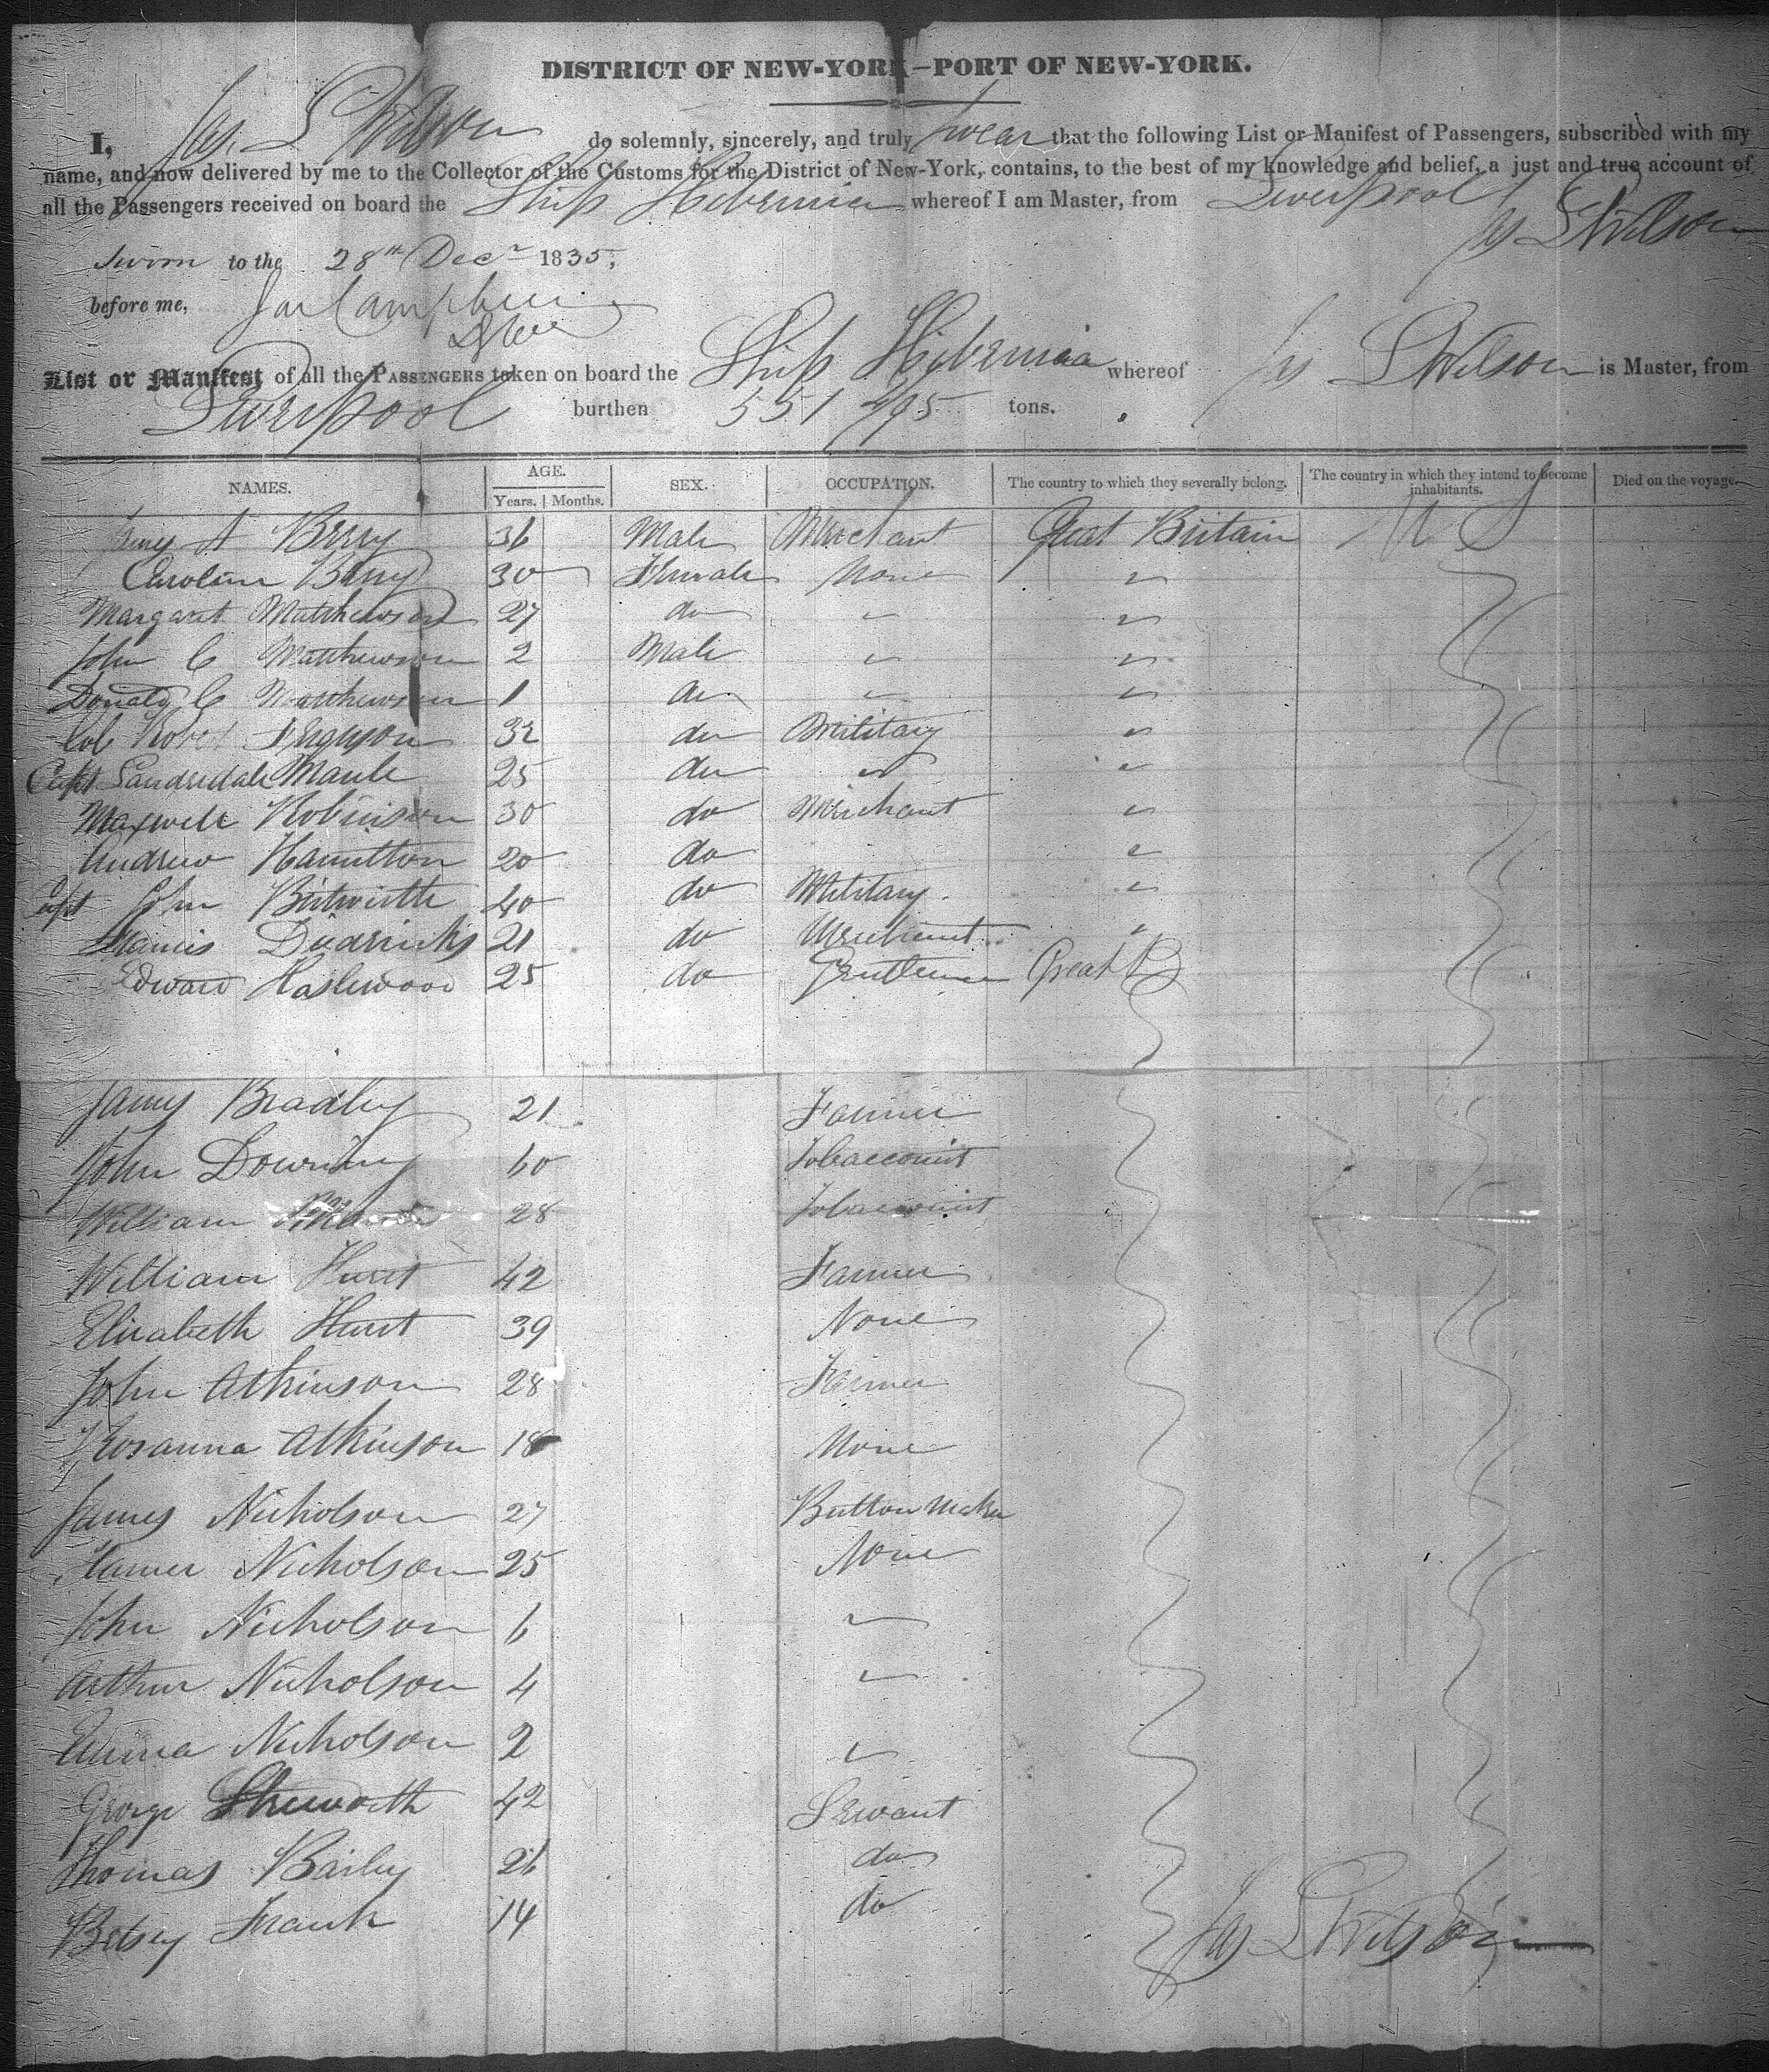 DISTRICT OF NEW-YORK—PORT OF NEW-YORK.
I, Jas. L Wilson do solemnly, sincerely, and truly swear that the following List or Manifest of Passengers, subscribed with my
name, and now delivered by me to the Collector of the Customs for the District of New-York, contains, to the best of my knowledge and belief, a just and true account of
all the Passengers received on board the Ship Hibernia whereof I am Master, from Liverpool
Jas L Wilson
Sworn to the 28th Decr 1835,
before me, Jas Campbell
List or Manifest of all the PASSENGERS taken on board the Ship Hibernia whereof Jas L Wilson is Master, from
Liverpool burthen 551 /95 tons.
NAMES. AGE. Years. Months. SEX. OCCUPATION. The country to which they severally belong. The country in which they intend to become inhabitants. Died on the voyage.
James A Berry 36 Male Merchant Great Britain U S
Caroline Berry 30 Female None "
Margaret Matthewson 27 do " "
John C Matthewson 2 Male " "
Donald C Matthewson 1 do " "
Col Robt Ferguson 32 do Military "
Capt Maule 25 do " "
Maxwell Robinson 30 do Merchant "
Andrew Hamilton 20 do "
Capt John 40 do Military "
21 do Merchant "
Edward Haslewood 25 do Gentleman Great B
James Bradley 21 Farmer
John Downing 60 Tobacconist
William 28 Tobacconist
William Hurst 42 Farmer
Elizabeth Hurst 39 None
John Atkinson 28 Farmer
Rosanna Atkinson 18 None
James Nicholson 27 Button Maker
Nicholson 25 None
John Nicholson 6 "
Arthur Nicholson 4 "
Emma Nicholson 2 "
George 42 Servant
Thomas Baily 26 do
Betsey Frank 14 do
Jas L Wilson